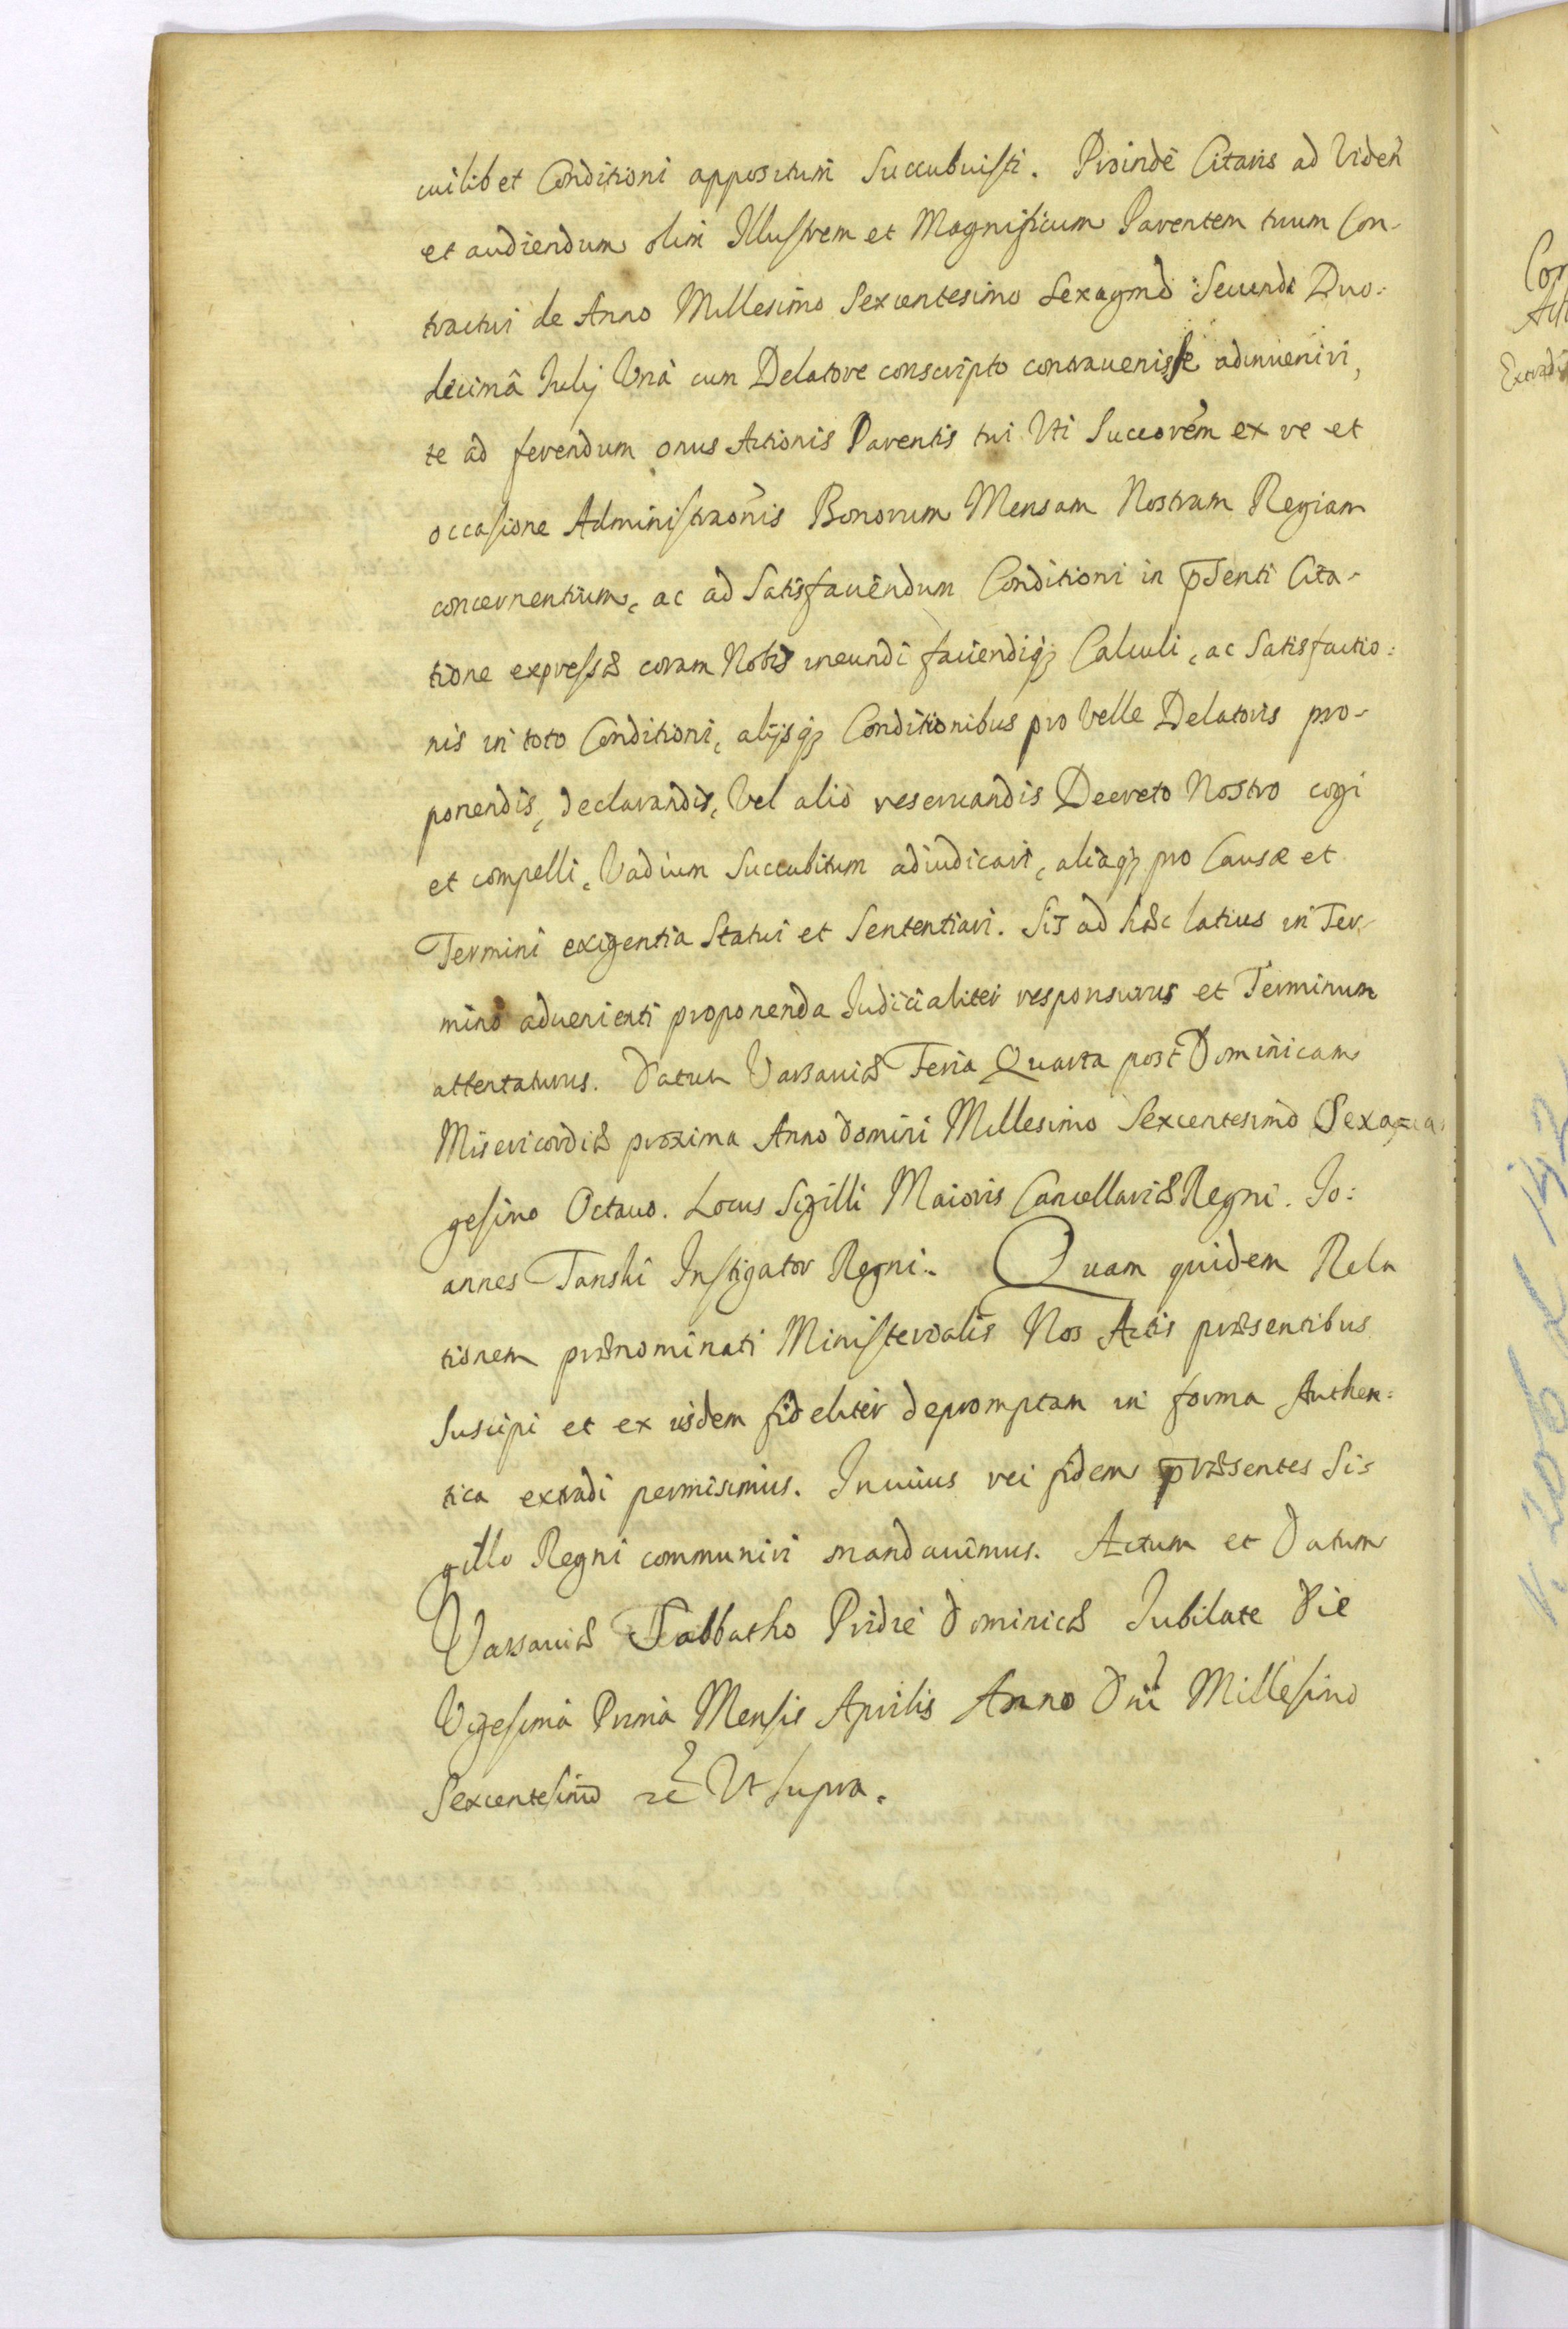 cuilibet Conditioni appositum Succubuisti. Proinde Citaris ad Viden
et audiendum olim Illustrem et Magnificum Parentem tuum Con-
tractui de Anno Millesimo Sexcentesimo Sexagmo Secundo Duo:
decimâ Julij Vnà cum Delatore conscripto contrauenisse adinueniri,
te ad ferendum onus Actionis Parentis tui Vti Succorem ex re et
occasione Administraonis Bonorum Mensam Nostram Regiam
concernentium, ac ad Satisfaciendum Conditioni in pdsenti Cita-
tione expressæ coram Nobis ineundi faciendiq; Calculi, ac Satisfactio:
nis in toto Conditioni, alijsq; Conditionibus pro Velle Delatoris pro-
ponendis, declarandis, Vel aliò reseruandis Decreto Nostro cogi
et compelli, Vadium Succubitum adiudicari, aliaq; pro Causæ et
Termini exigentia Statui et Sententiari. Sis ad hæc latius in Ter-
mino aduenienti proponenda Judicialiter responsurus et Terminum
attentaturus. Datum Varsauiæ Feria Quarta post Dominicam
Misericordiæ proxima Anno Domini Millesimo Sexcentesimo Sexa
gesimo Octauo. Locus Sigilli Maioris Cancellariæ Regni. Jo:
annes Tanski Instigator Regni. Quam quidem Rela
tionem prænominati Ministerialis Nos Actis præsentibus
Suscipi et ex iisdem fideliter depromptam in forma Authen:
tica extradi permisimus. In cuius rei fidem præsentes Si-
gillo Regni communiri mandauimus. Actum et Datum
Varsauiæ Sabbatho Pridie Dominicæ Jubilate Die
Vigesimà Primà Mensis Aprilis Anno Dni Millesimo
Sexcentesimo etc Vt supra.